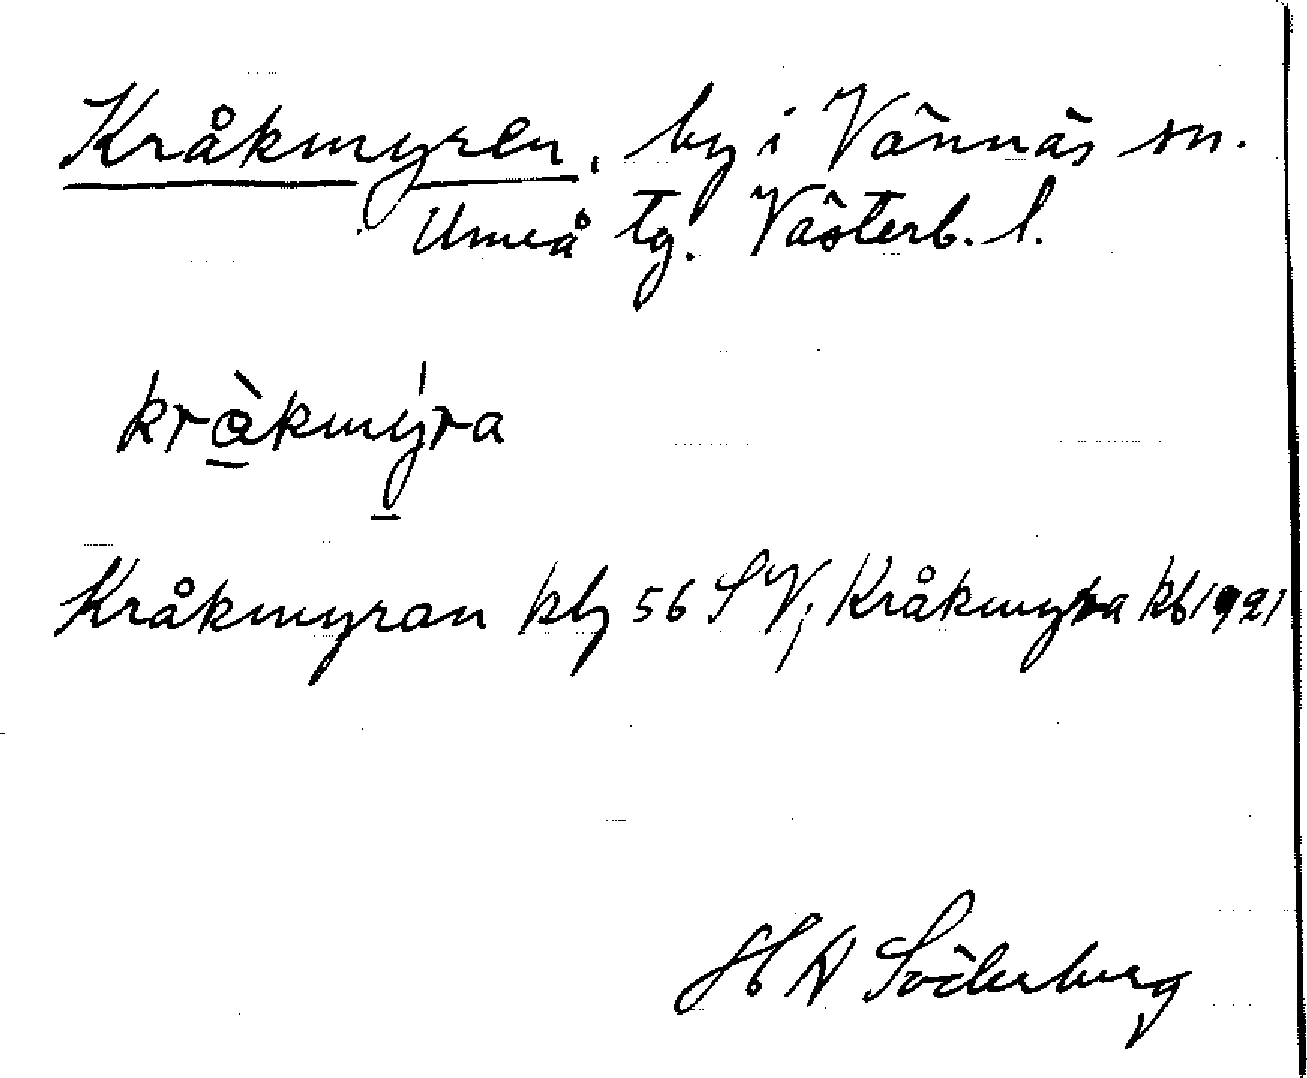 Kråkmyren, by i Vännäs sn.
Umeå tg. Västerb. l.
kràkmy̱ra
Kråkmyran kbl 56 SV; Kråkmyra kb 1921
H A Söderberg